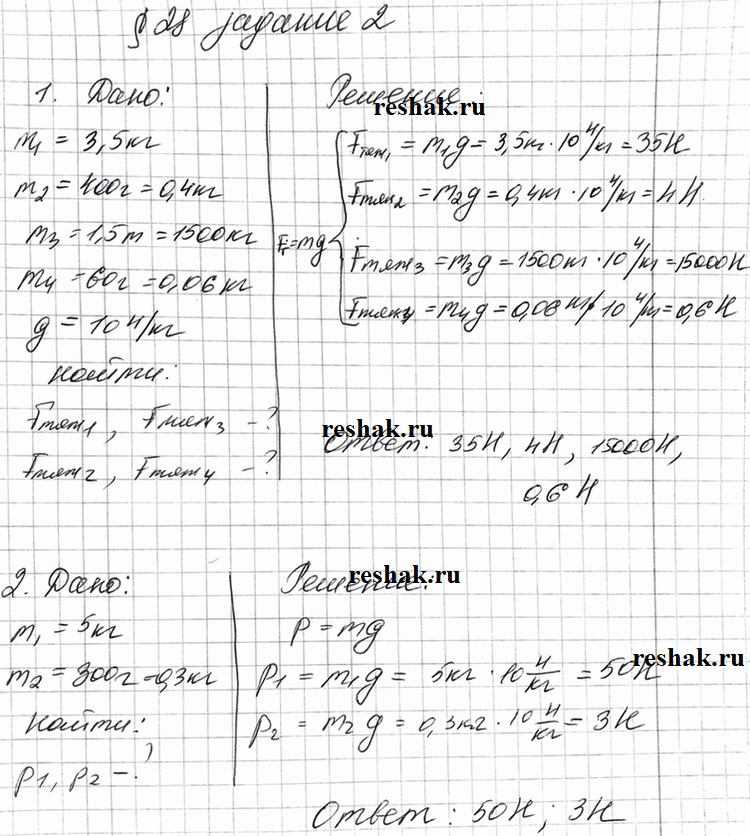 § 28 задание 2
1. Дано:
m₁ = 3,5кг
m₂ = 400г = 0,4кг
m₃ = 1,5т = 1500кг
m₄ = 60г = 0,06кг
g = 10 Н/кг
Найти:
Fтяж1, Fтяж3 - ?
Fтяж2, Fтяж4 - ?
Решение:
reshak.ru
F=mg
Fтяж₁ = m₁g = 3,5кг · 10 Н/кг = 35Н
Fтяж2 = m₂g = 0,4кг · 10 Н/кг = 4Н.
Fтяж3 = m₃g = 1500кг · 10 Н/кг = 15000Н
Fтяж4 = m₄g = 0,06кг · 10 Н/кг = 0,6Н
reshak.ru
Ответ: 35Н, 4Н, 15000Н,
0,6Н
2. Дано:
m₁ = 5кг
m₂ = 300г = 0,3кг
Найти:
P1, P2 - ?
Решение:
reshak.ru
P = mg
reshak.ru
P1 = m₁g = 5кг · 10 Н/кг = 50Н
P2 = m₂g = 0,3кг · 10 Н/кг = 3Н
Ответ: 50Н; 3Н